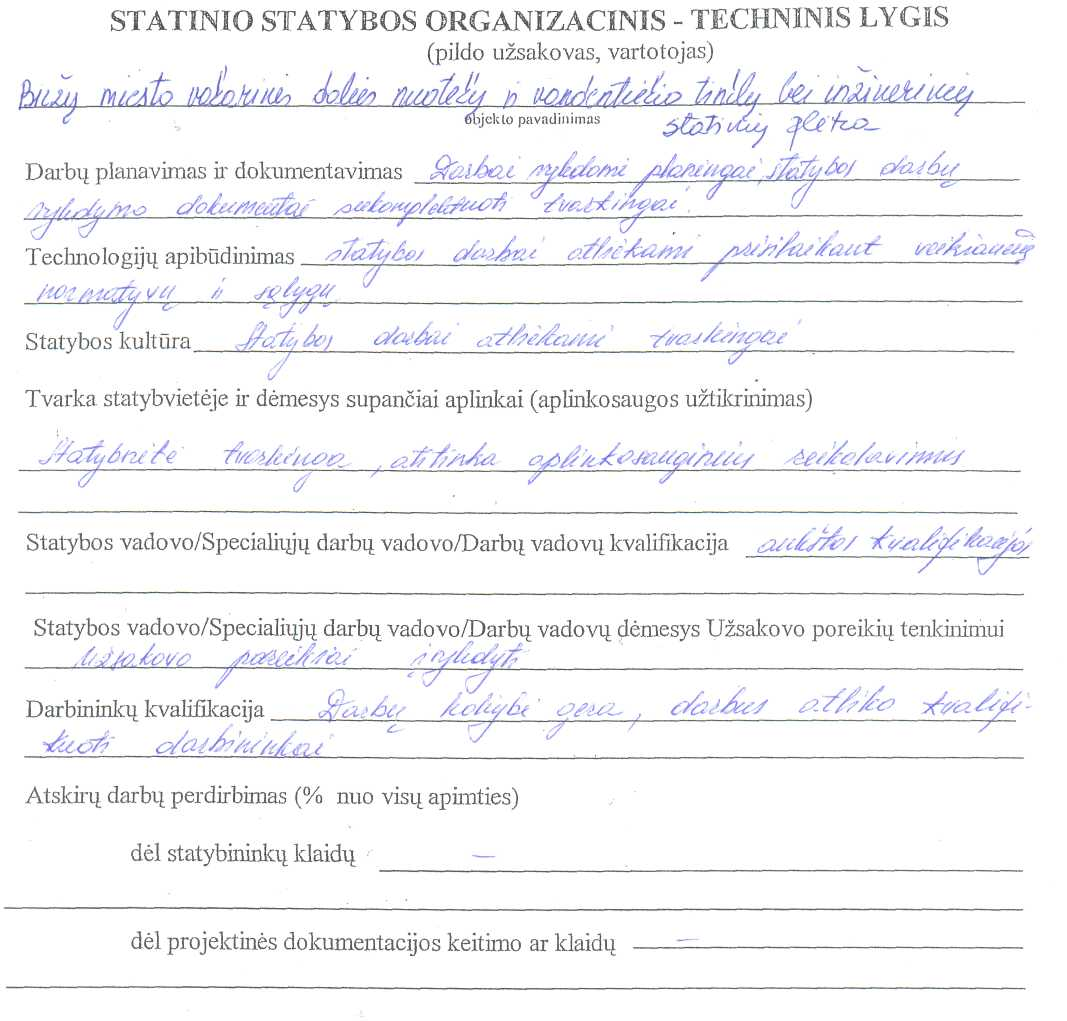 STATINIO STATYBOS ORGANIZACINIS - TECHNINIS LYGIS
(pildo užsakovas, vartotojas)
miesto vakarinės dalies nuotekų ir vandentiekio tinklų bei inžinerinių
objekto pavadinimas
statinių plėtra
Darbų planavimas ir dokumentavimas Darbai vykdomi planingai, statybos darbų
vykdymo dokumentai sukomplektuoti tvarkingai.
Technologijų apibūdinimas statybos darbai atliekami prisilaikant veikiančių
normatyvų ir sąlygų
Statybos kultūra Statybos darbai atliekami tvarkingai
Tvarka statybvietėje ir dėmesys supančiai aplinkai (aplinkosaugos užtikrinimas)
Statybvietė tvarkinga, atitinka aplinkosauginius reikalavimus
Statybos vadovo/Specialiųjų darbų vadovo/Darbų vadovų kvalifikacija aukštos kvalifikacijos
Statybos vadovo/Specialiųjų darbų vadovo/Darbų vadovų dėmesys Užsakovo poreikių tenkinimui
Užsakovo poreikiai įvykdyti
Darbininkų kvalifikacija Darbų kokybė gera, darbus atliko kvalifi-
kuoti darbininkai
Atskirų darbų perdirbimas (% nuo visų apimties)
dėl statybininkų klaidų –
dėl projektinės dokumentacijos keitimo ar klaidų –